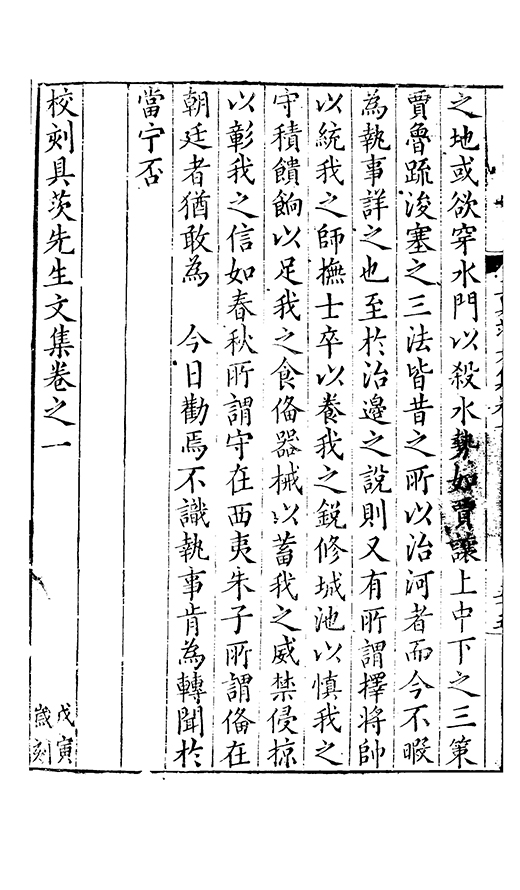 之地或欲穿水門以殺水勢如賈讓上中下之三策
賈魯疏浚塞之三法皆昔之所以治河者而今不暇
為執事詳之也至於治邊之說則又有所謂擇將帥
以統我之師撫士卒以養我之銳修城池以慎我之
守積饋餉以足我之食俻器械以蓄我之威禁侵掠
以彰我之信如春秋所謂守在西夷朱子所謂俻在
朝廷者猶敢為　今日勸焉不識執事肯為轉聞於
當宁否
校刻具茨先生文集卷之一
戊寅
歲刻